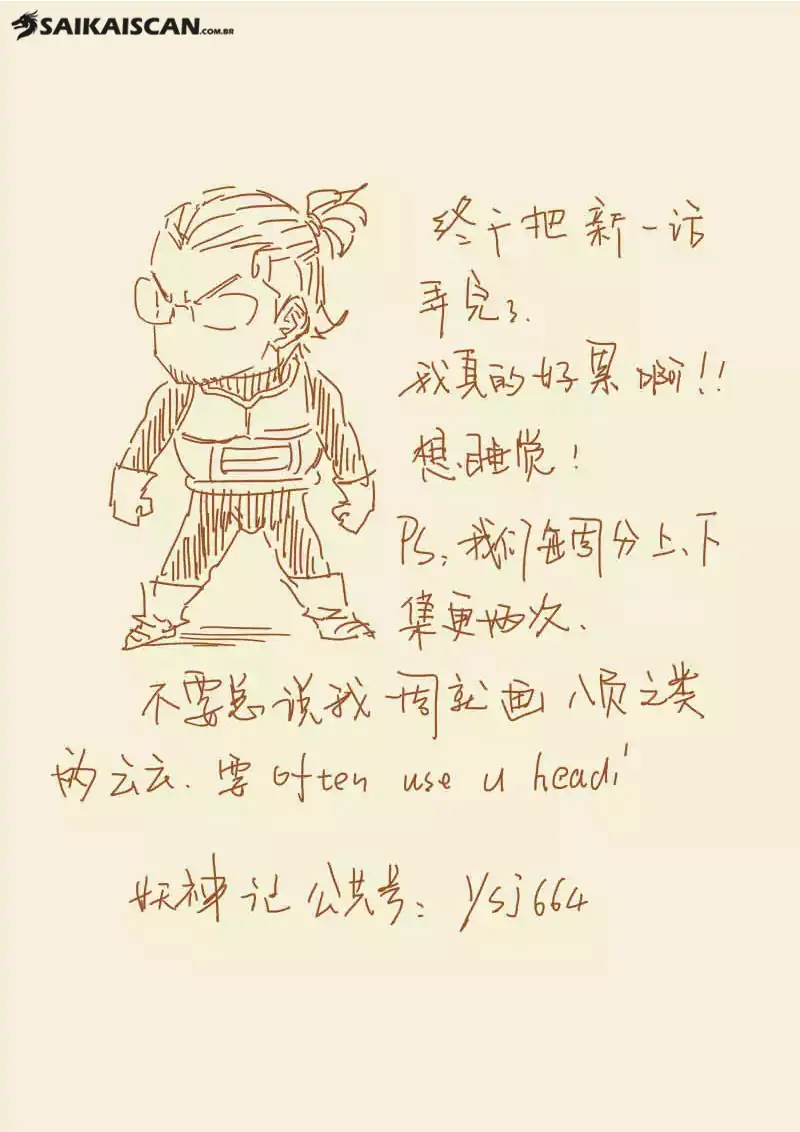 SAIKAISCAN.COM.BR
终于把新一话
弄完了.
我真的好累啊!!
想睡觉!
PS:我们每周分上、下
集更两次.
不要总说我一周就画八页之类
的云云.要often use u head!
妖神记公共号:ysj664